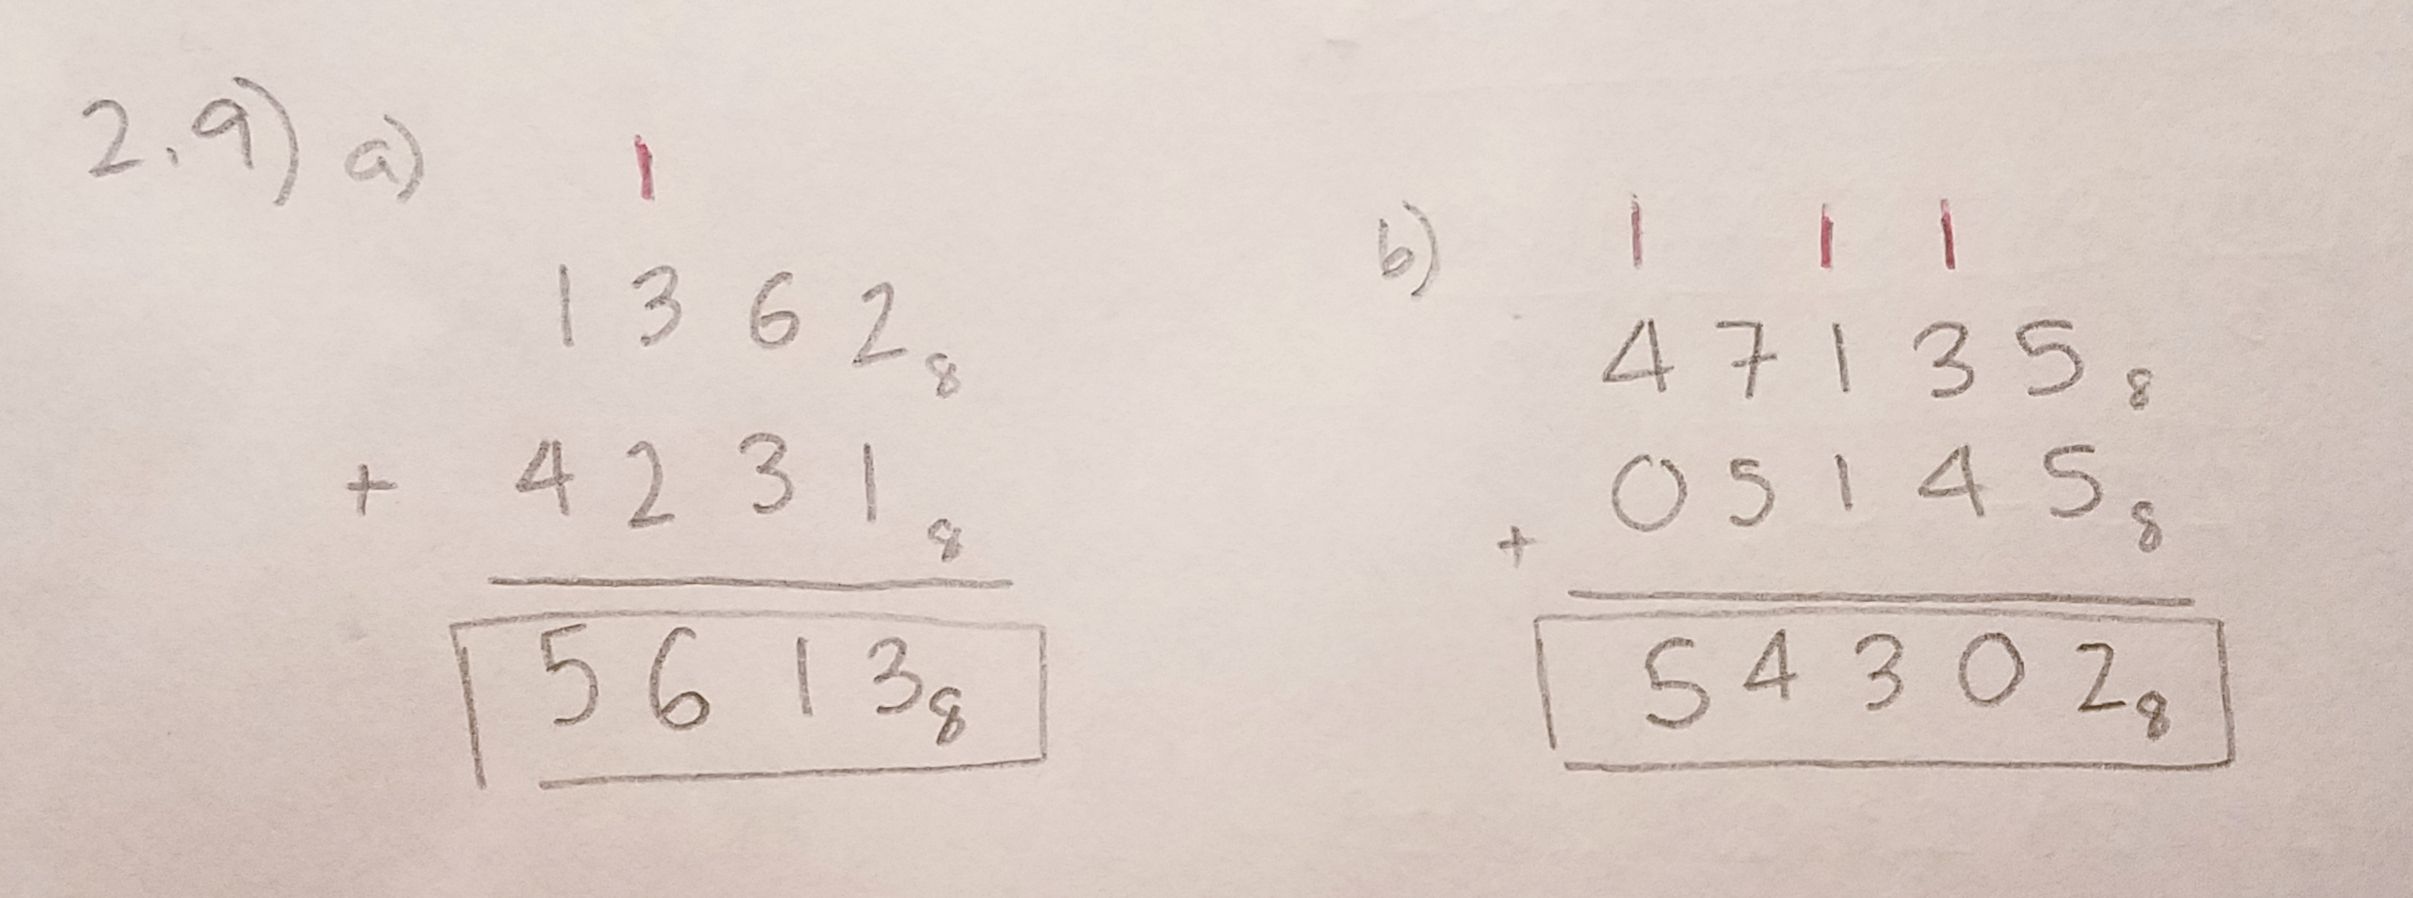 2.9) a)
1
1 3 6 2 8
+ 4 2 3 1 8
5 6 1 3 8
b)
1 1 1
4 7 1 3 5 8
+ 0 5 1 4 5 8
5 4 3 0 2 8